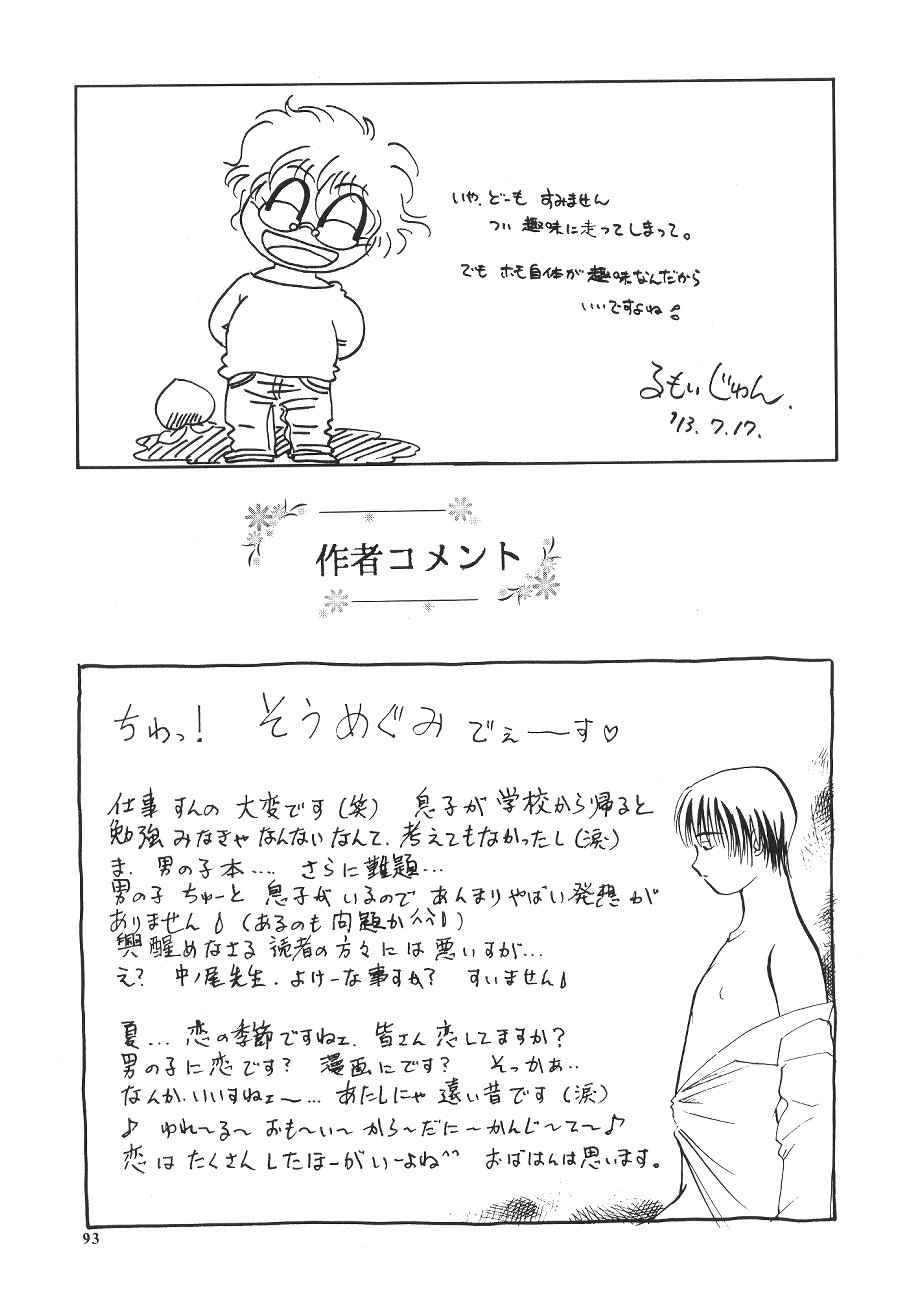 いや、どーも すみません
つい 趣味に走ってしまって。
でも ホモ自体が趣味なんだから
いいですよね
るもいじゅん.
'13.7.17.
作者コメント
ちわっ! そうめぐみ でぇーーす♡
仕事 すんの 大変です(笑) 息子が学校から帰ると
勉強みなきゃなんないなんて、考えてもなかったし(涙)
ま、男の子本.... さらに難題...
男の子 ちゅーと 息子がいるので あんまりやばい発想が
ありません!(あるのも問題か^^!)
興醒めなさる読者の方々には悪いすが...
え? 中ノ尾先生、よけーな事すか? すいません!
夏... 恋の季節ですねェ、皆さん恋してますか?
男の子に恋です? 漫画にです? そっかぁ..
なんか、いいすねェ〜... あたしにゃ 遠い昔です(涙)
♪ ゆれ〜る〜 おも〜い〜 から〜だに〜かんじ〜て〜♪
恋は たくさん したほーが いーよね^^ おばはんは思います。
93